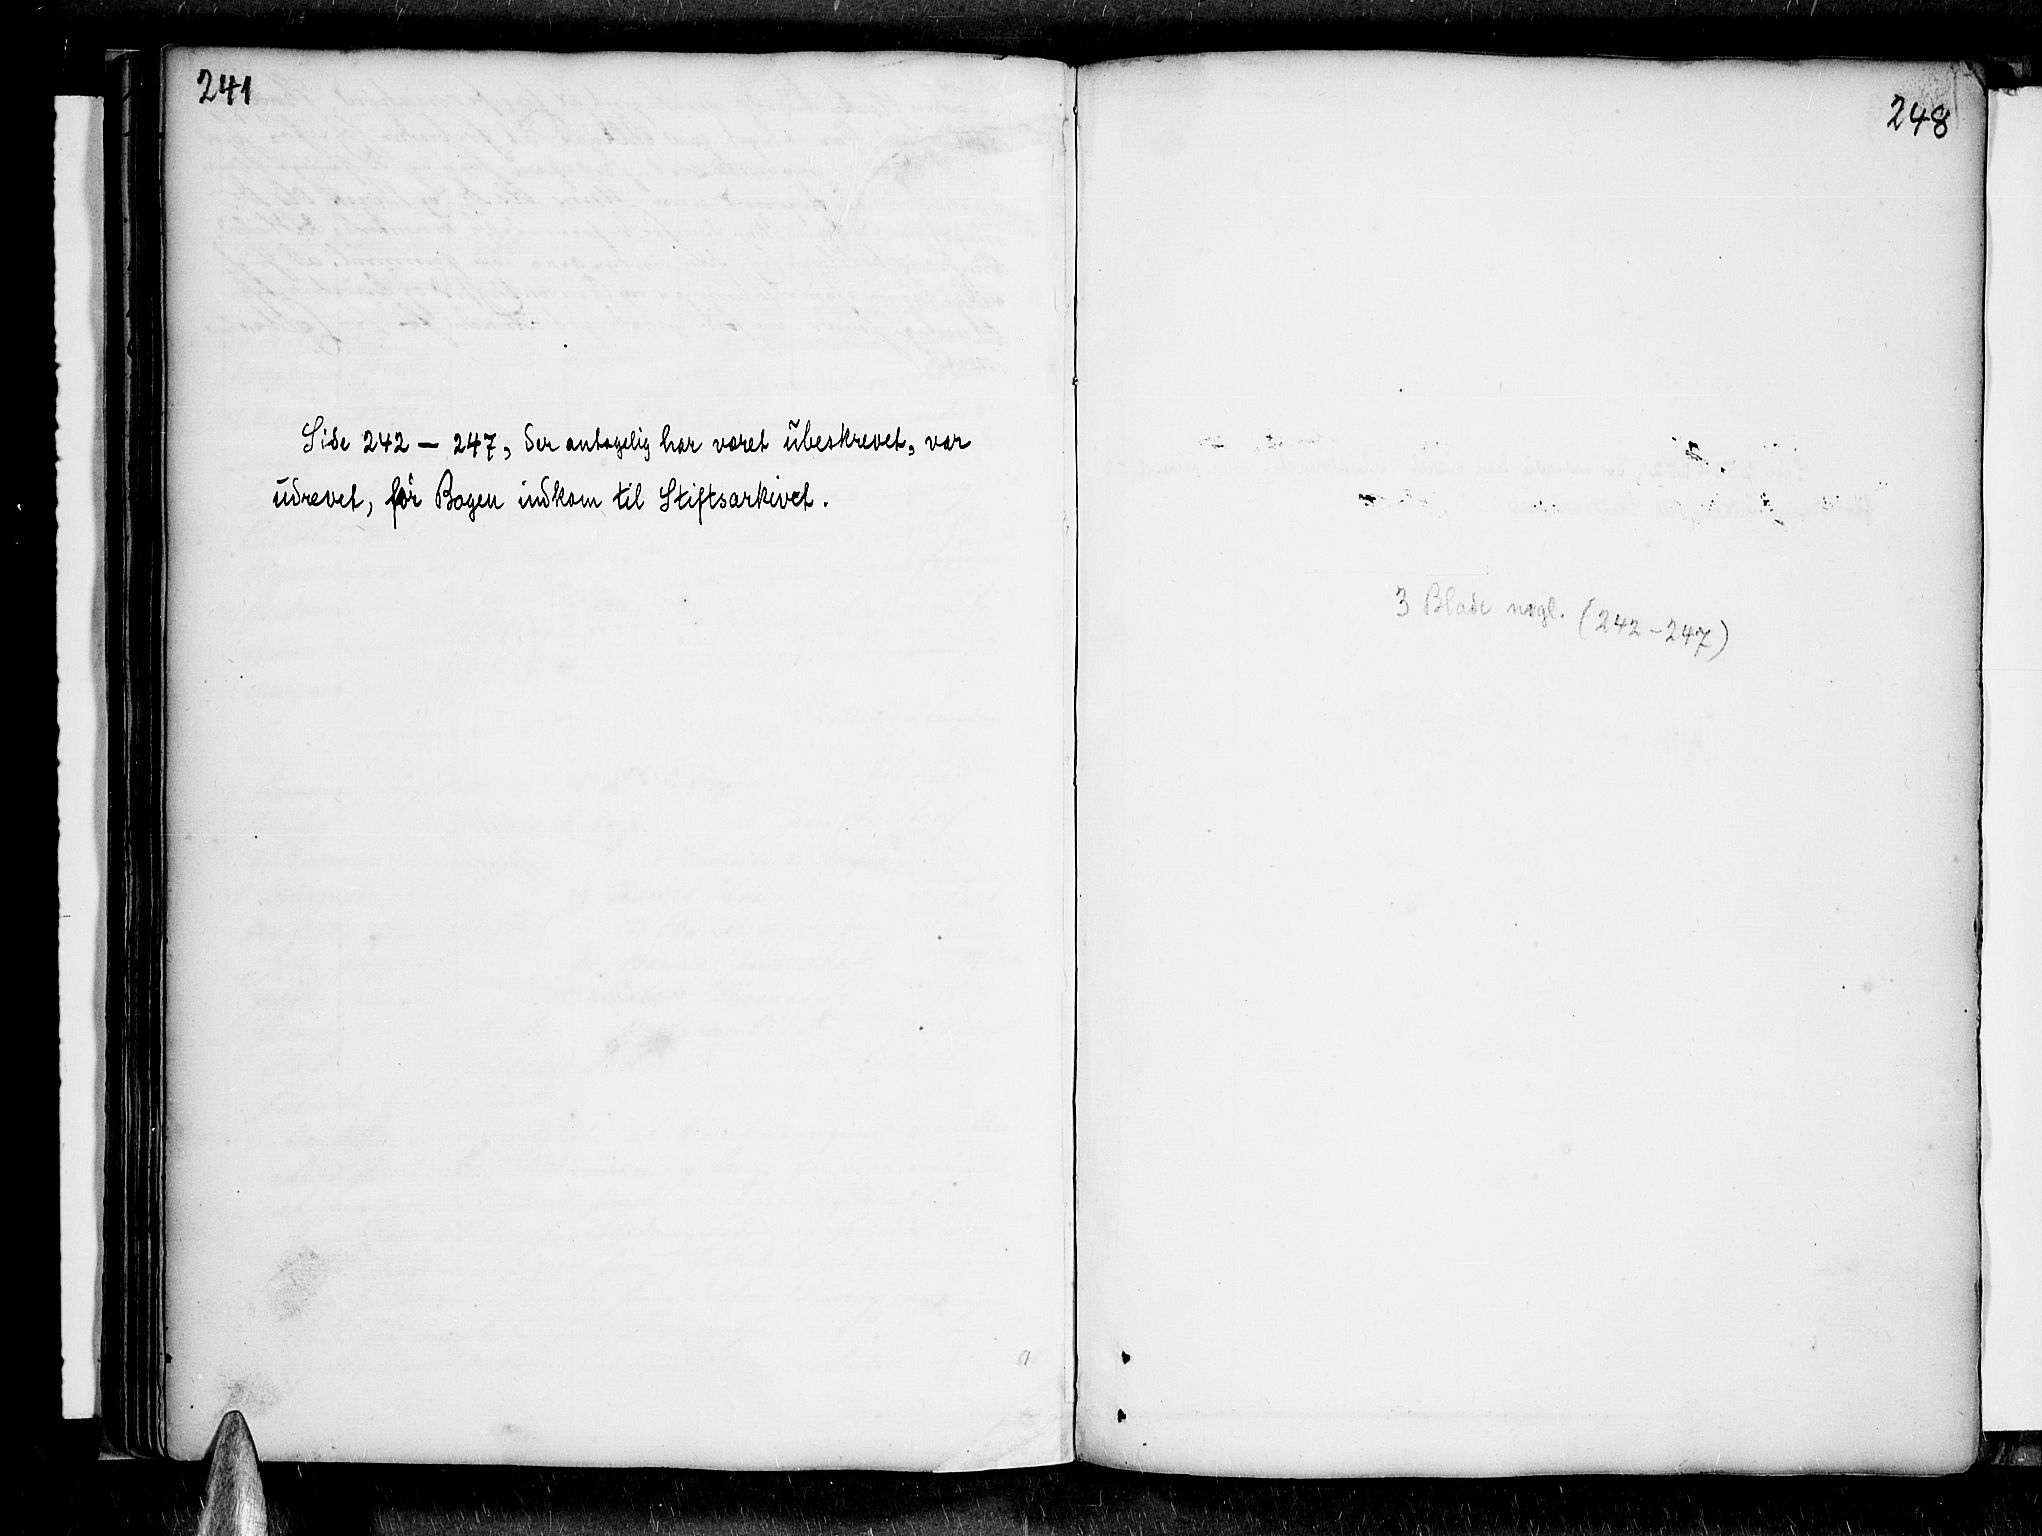 241
Side 242 — 247, der antagelig har været ubeskrevet, var
udrevet, før Bogen indkom til Stiftsarkivet.
248
3 Blade mgl. (242-247)